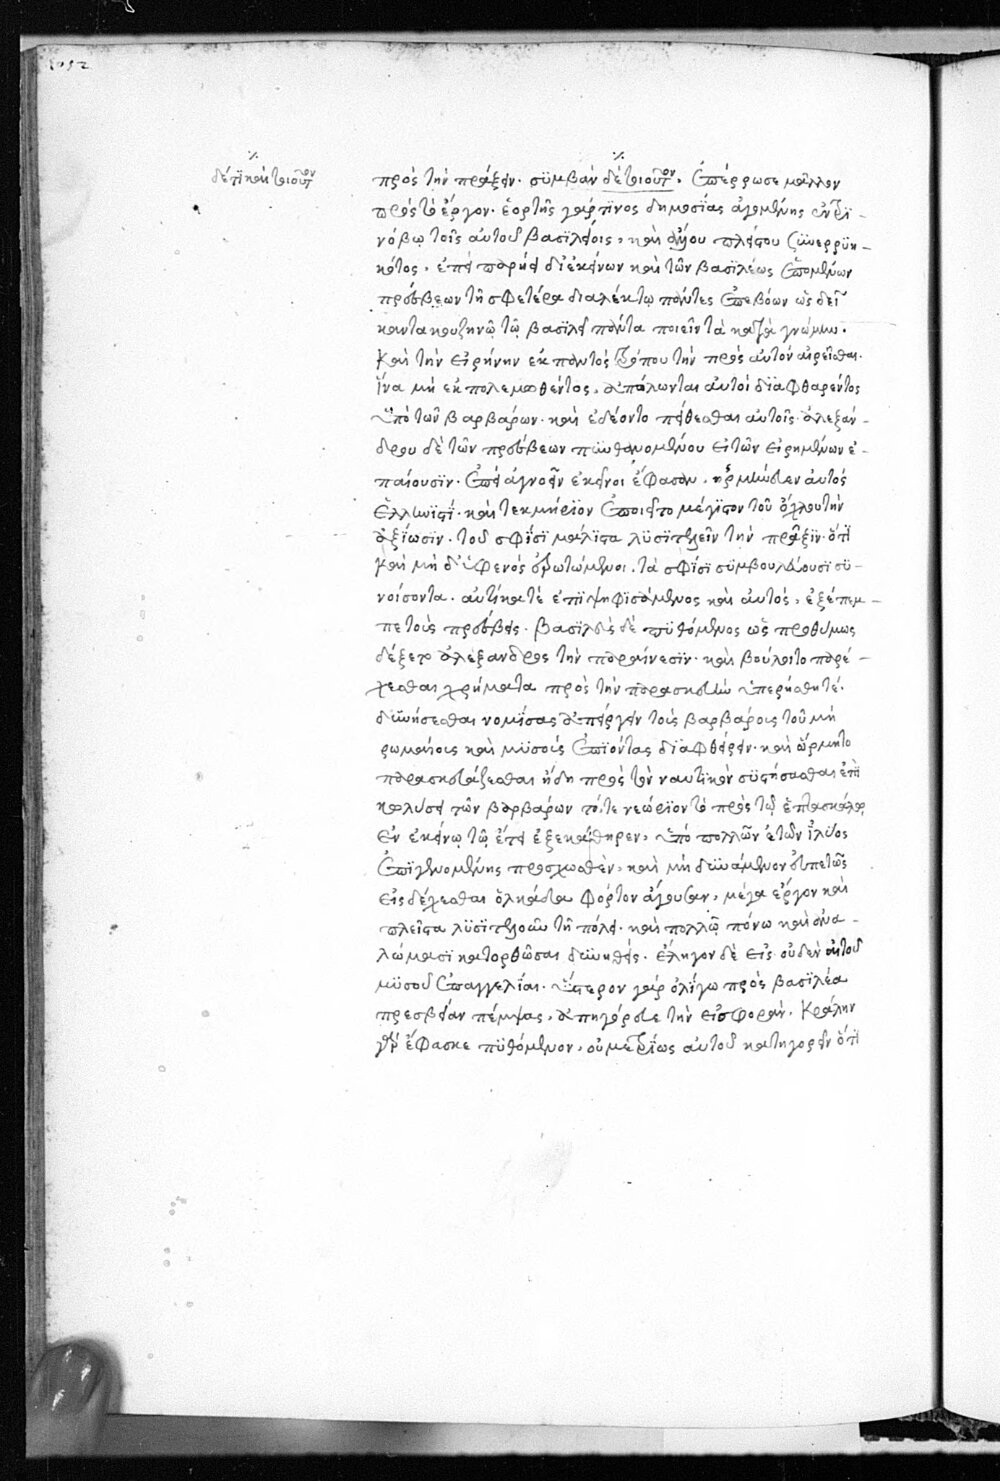 δέ τι καὶ τοιοῦτον
πρὸς τὴν πρᾶξιν. σϋμβὰν δὲ τοιοῦτον. ἐπέρρωσε μᾶλλον
πρὸς τὸ ἔργον. ἑορτῆς γάρ τϊνος δημοσίας ἀγομένης ἐν Τρϊ-
νόβῳ τοῖς αὐτοῦ βασϊλείοις, καὶ δήμου πλείστου ξϋνερρϋη-
κότος, ἐπεὶ παρῄει δι' ἐκείνων καὶ τῶν βασϊλέως ἑπομένων
πρέσβεων τῇ σφετέρα διαλέκτῳ πάντες ἐπεβόων ὡς δεῖ
καντακουζηνῷ τῷ βασϊλεῖ πάντα ποιεῖν τὰ κατὰ γνώμην.
καὶ τὴν εἰρήνην ἐκ παντὸς τρόπου τὴν πρὸς αὐτὸν αἱρεῖσθαι.
ἵνα μὴ ἐκπολεμωθέντος, ἀπόλωνται αὐτοὶ διαφθαρέντες
ὑπὸ τῶν βαρβάρων. καὶ ἐδέοντο πείθεσθαι αὐτοῖς. ἀλεξάν-
δρου δὲ τῶν πρέσβεων πϋνθανομένου εἰ τῶν εἰρημένων ἐ-
παίουσϊν. ἐπεὶ ἀγνοεῖν ἐκεῖνοι ἔφασαν, ἡρμήνευεν αὐτὸς
ἑλληνϊστί. καὶ τεκμήριον ἐποιεῖτο μέγϊστον τοῦ ὄχλου τὴν
ἀξίωσϊν. τοῦ σφίσϊ μάλϊστα λϋσϊτελεῖν τὴν πρᾶξϊν. ὅτϊ
καὶ μὴ δι' ἑφενὸς ἐρωτώμενοι. τὰ σφίσϊ σϋμβουλεύουσϊ σϋ-
νοίσοντα. αὐτίκα τὲ ἐπϊψηφϊσάμενος καὶ αὐτὸς, ἐξέπεμ-
πε τοὺς πρέσβεις. βασϊλεὺς δὲ πϋθόμενος ὡς προθύμως
δέξετο ἀλέξανδρος τὴν παραίνεσϊν. καὶ βούλοιτο παρέ-
χεσθαι χρήματα πρὸς τὴν παρασκευὴν ὑπερήσθη τέ.
δϋνήσεσθαι νομίσας ἀπείργειν τοὺς βαρβάρους τοῦ μὴ
ρωμαίοις καὶ μϋσοῖς ἐπϊόντας δϊαφθείρειν. καὶ ὥρμητο
παρασκευάζεσθαι ἤδη πρὸς τὸν ναυτϊκὸν σϋστήσασθαι ἐπὶ
κωλύσει τῶν βαρβάρων τό, τε νεώριον τὸ πρὸς τῷ ἑπτασκάλῳ
ἐν ἐκείνῳ τῷ ἔτει ἐξεκάθηρεν, ὑπὸ πολλῶν ἐτῶν ἰλύος
ἐπϊγενομένης προσχωθὲν, καὶ μὴ δϋνάμενον εὐπετῶς
εἰσδέχεσθαι ὁλκάδα φόρτον ἄγουσαν, μέγα ἔργον καὶ
πλεῖστα λϋσϊτελοῦν τῇ πόλει. καὶ πολλῷ πόνω καὶ ἀνα-
λώμασϊ κατορθῶσαι δϋνηθείς. ἔληγον δὲ εἰς οὐδὲν αἱ τοῦ
μϋσοῦ ἐπαγγελίαι. ὕστερον γὰρ ὀλίγω πρὸς βασϊλέα
πρεσβείαν πέμψας, ἀπηγόρευε τὴν εἰσφοράν. Κράλην
γὰρ ἔφασκε πϋθόμενον, οὐ μετρίως αὐτοῦ κατηγορεῖν ὅτϊ